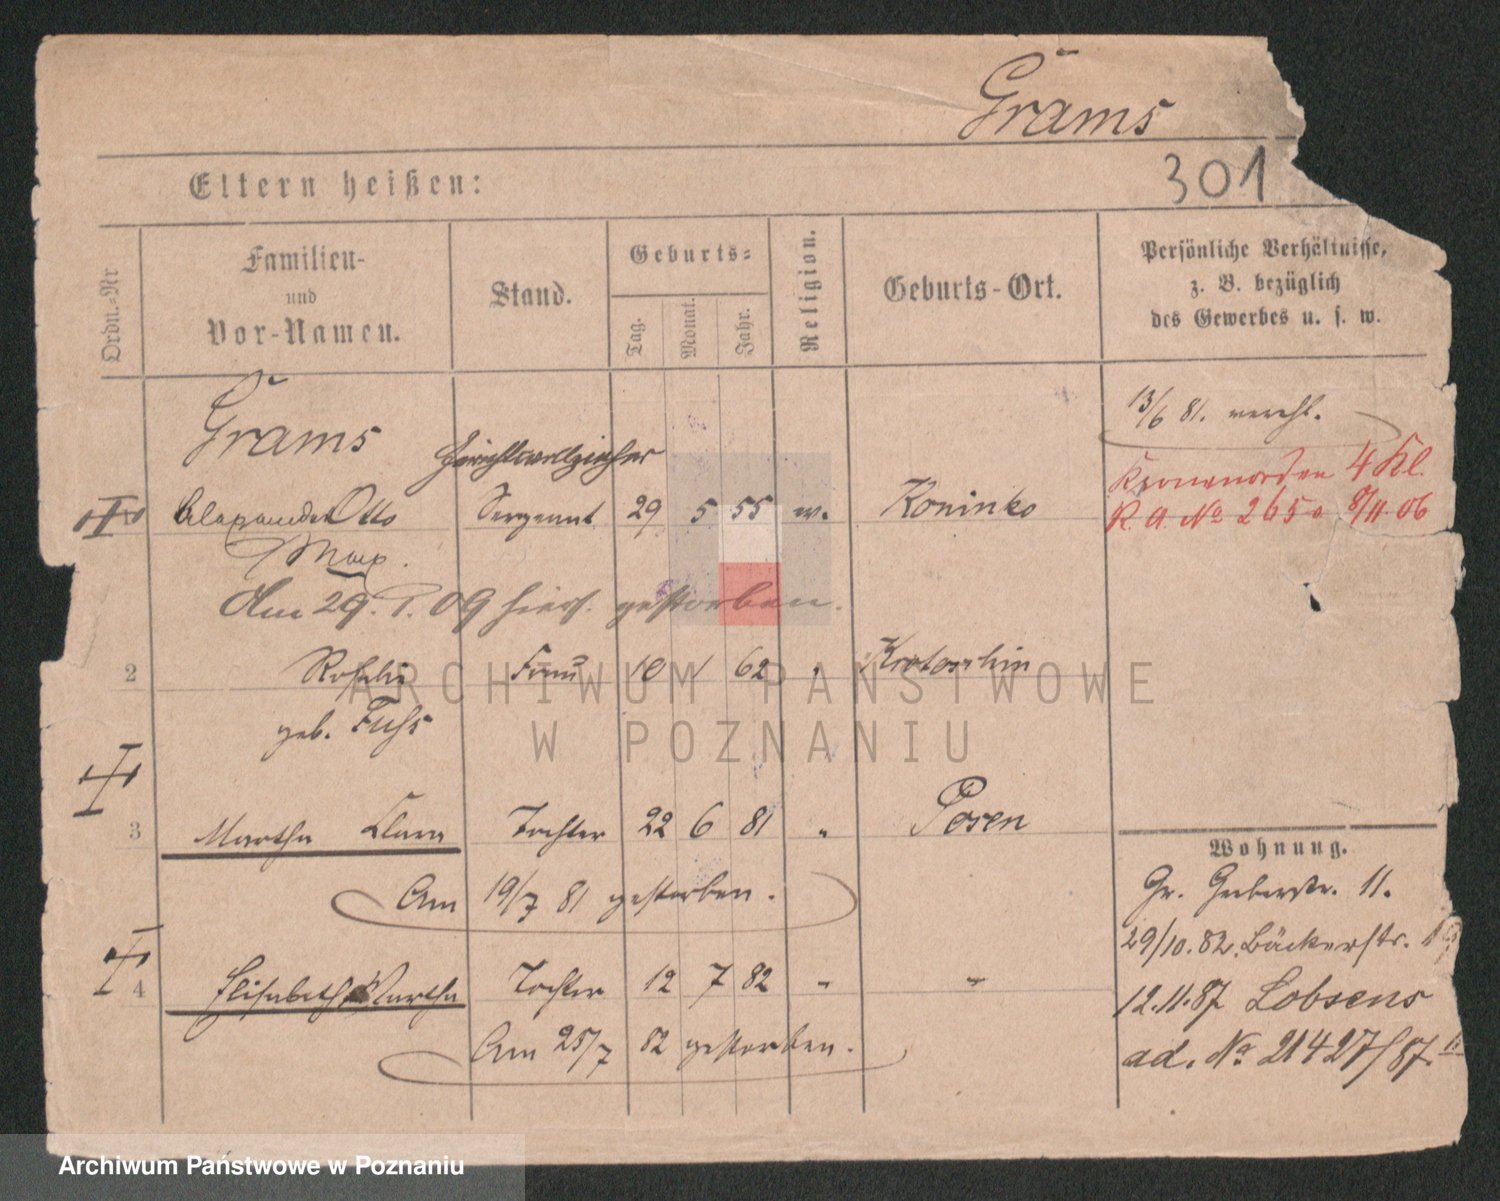 Grams
301
Eltern heißen:
Ordn.-Nr
Familien-
und
Vor-Namen.
Stand.
Geburts-
Tag.
Monat.
Jahr.
Religion.
Geburts-Ort.
Persönliche Verhältnisse,
z. B. bezüglich
des Gewerbes u. s. w.
13/6 81. verehl.
Grams
Gerichtsvollzieher
Kronenorden 4 Kl.
Alexander Otto Sergeant 29 5 55 ev. Koninko
R. A. No 2650 8/11. 06
Max.
Am 29. 1. 09 hier gestorben.
2 Rosalie Frau 10 1 62 " Krotoschin
geb. Fuhs
3 Martha Clara Tochter 22 6 81 " Posen
Am 19/7 81 gestorben.
4 Elisabeth Martha Tochter 12 7 82 " "
Am 25/7 82 gestorben.
Wohnung.
Gr. Gerberstr. 11.
29/10. 82. Bäckerstr.
12.11.87 Lobsens
ad. No 21427/87.
ARCHIWUM PAŃSTWOWE
W POZNANIU
Archiwum Państwowe w Poznaniu